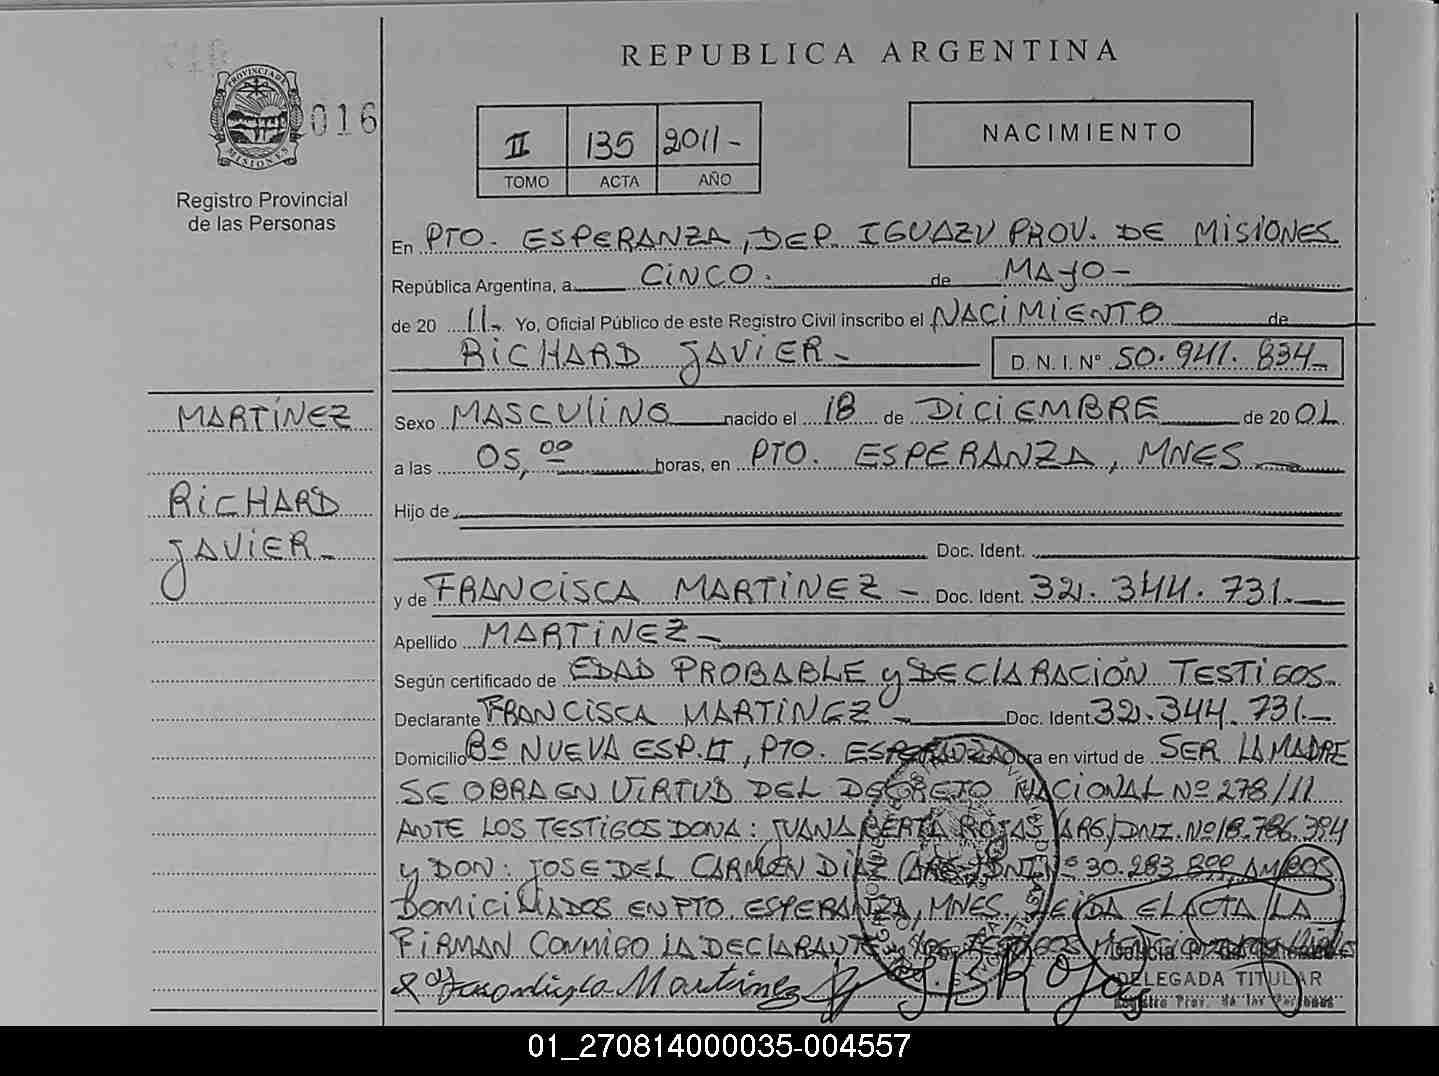 REPUBLICA ARGENTINA
PROVINCIA DE
MISIONES
016
Registro Provincial
de las Personas
II 135 2011-
TOMO ACTA AÑO
NACIMIENTO
En PTO. ESPERANZA, DEP. IGUAZU PROV. DE MISIONES
República Argentina, a CINCO. de MAYO-
de 20 11- Yo, Oficial Público de este Registro Civil inscribo el NACIMIENTO de
RICHARD JAVIER- D. N. I. Nº 50.941.834-
MARTÍNEZ
RICHARD
JAVIER-
Sexo MASCULINO nacido el 18 de DICIEMBRE de 20 01
a las 05,00 horas, en PTO. ESPERANZA, MNES
Hijo de
Doc. Ident.
y de FRANCISCA MARTINEZ - Doc. Ident. 32.344.731.
Apellido MARTINEZ-
Según certificado de EDAD PROBABLE y DECLARACIÓN TESTIGOS-
Declarante FRANCISCA MARTINEZ - Doc. Ident. 32.344.731.-
Domicilio Bº NUEVA ESP. II, PTO. ESPERANZA Obra en virtud de SER LA MADRE
SE OBRA EN VIRTUD DEL DECRETO NACIONAL Nº 278/11
ANTE LOS TESTIGOS DONA: JUANA BERTA ROJAS (ARG) DNI. Nº 18.786.394
y DON: JOSE DEL CARMEN DÍAZ (ARG) DNI Nº 30.283. AMBOS
DOMICILIADOS EN PTO. ESPERANZA, MNES, LEIDA EL ACTA LA
FIRMAN CONMIGO LA DECLARANTE Y LOS TESTIGOS
Martinez JBRojas
DELEGADA TITULAR
Registro Prov. de las Personas
01_270814000035-004557